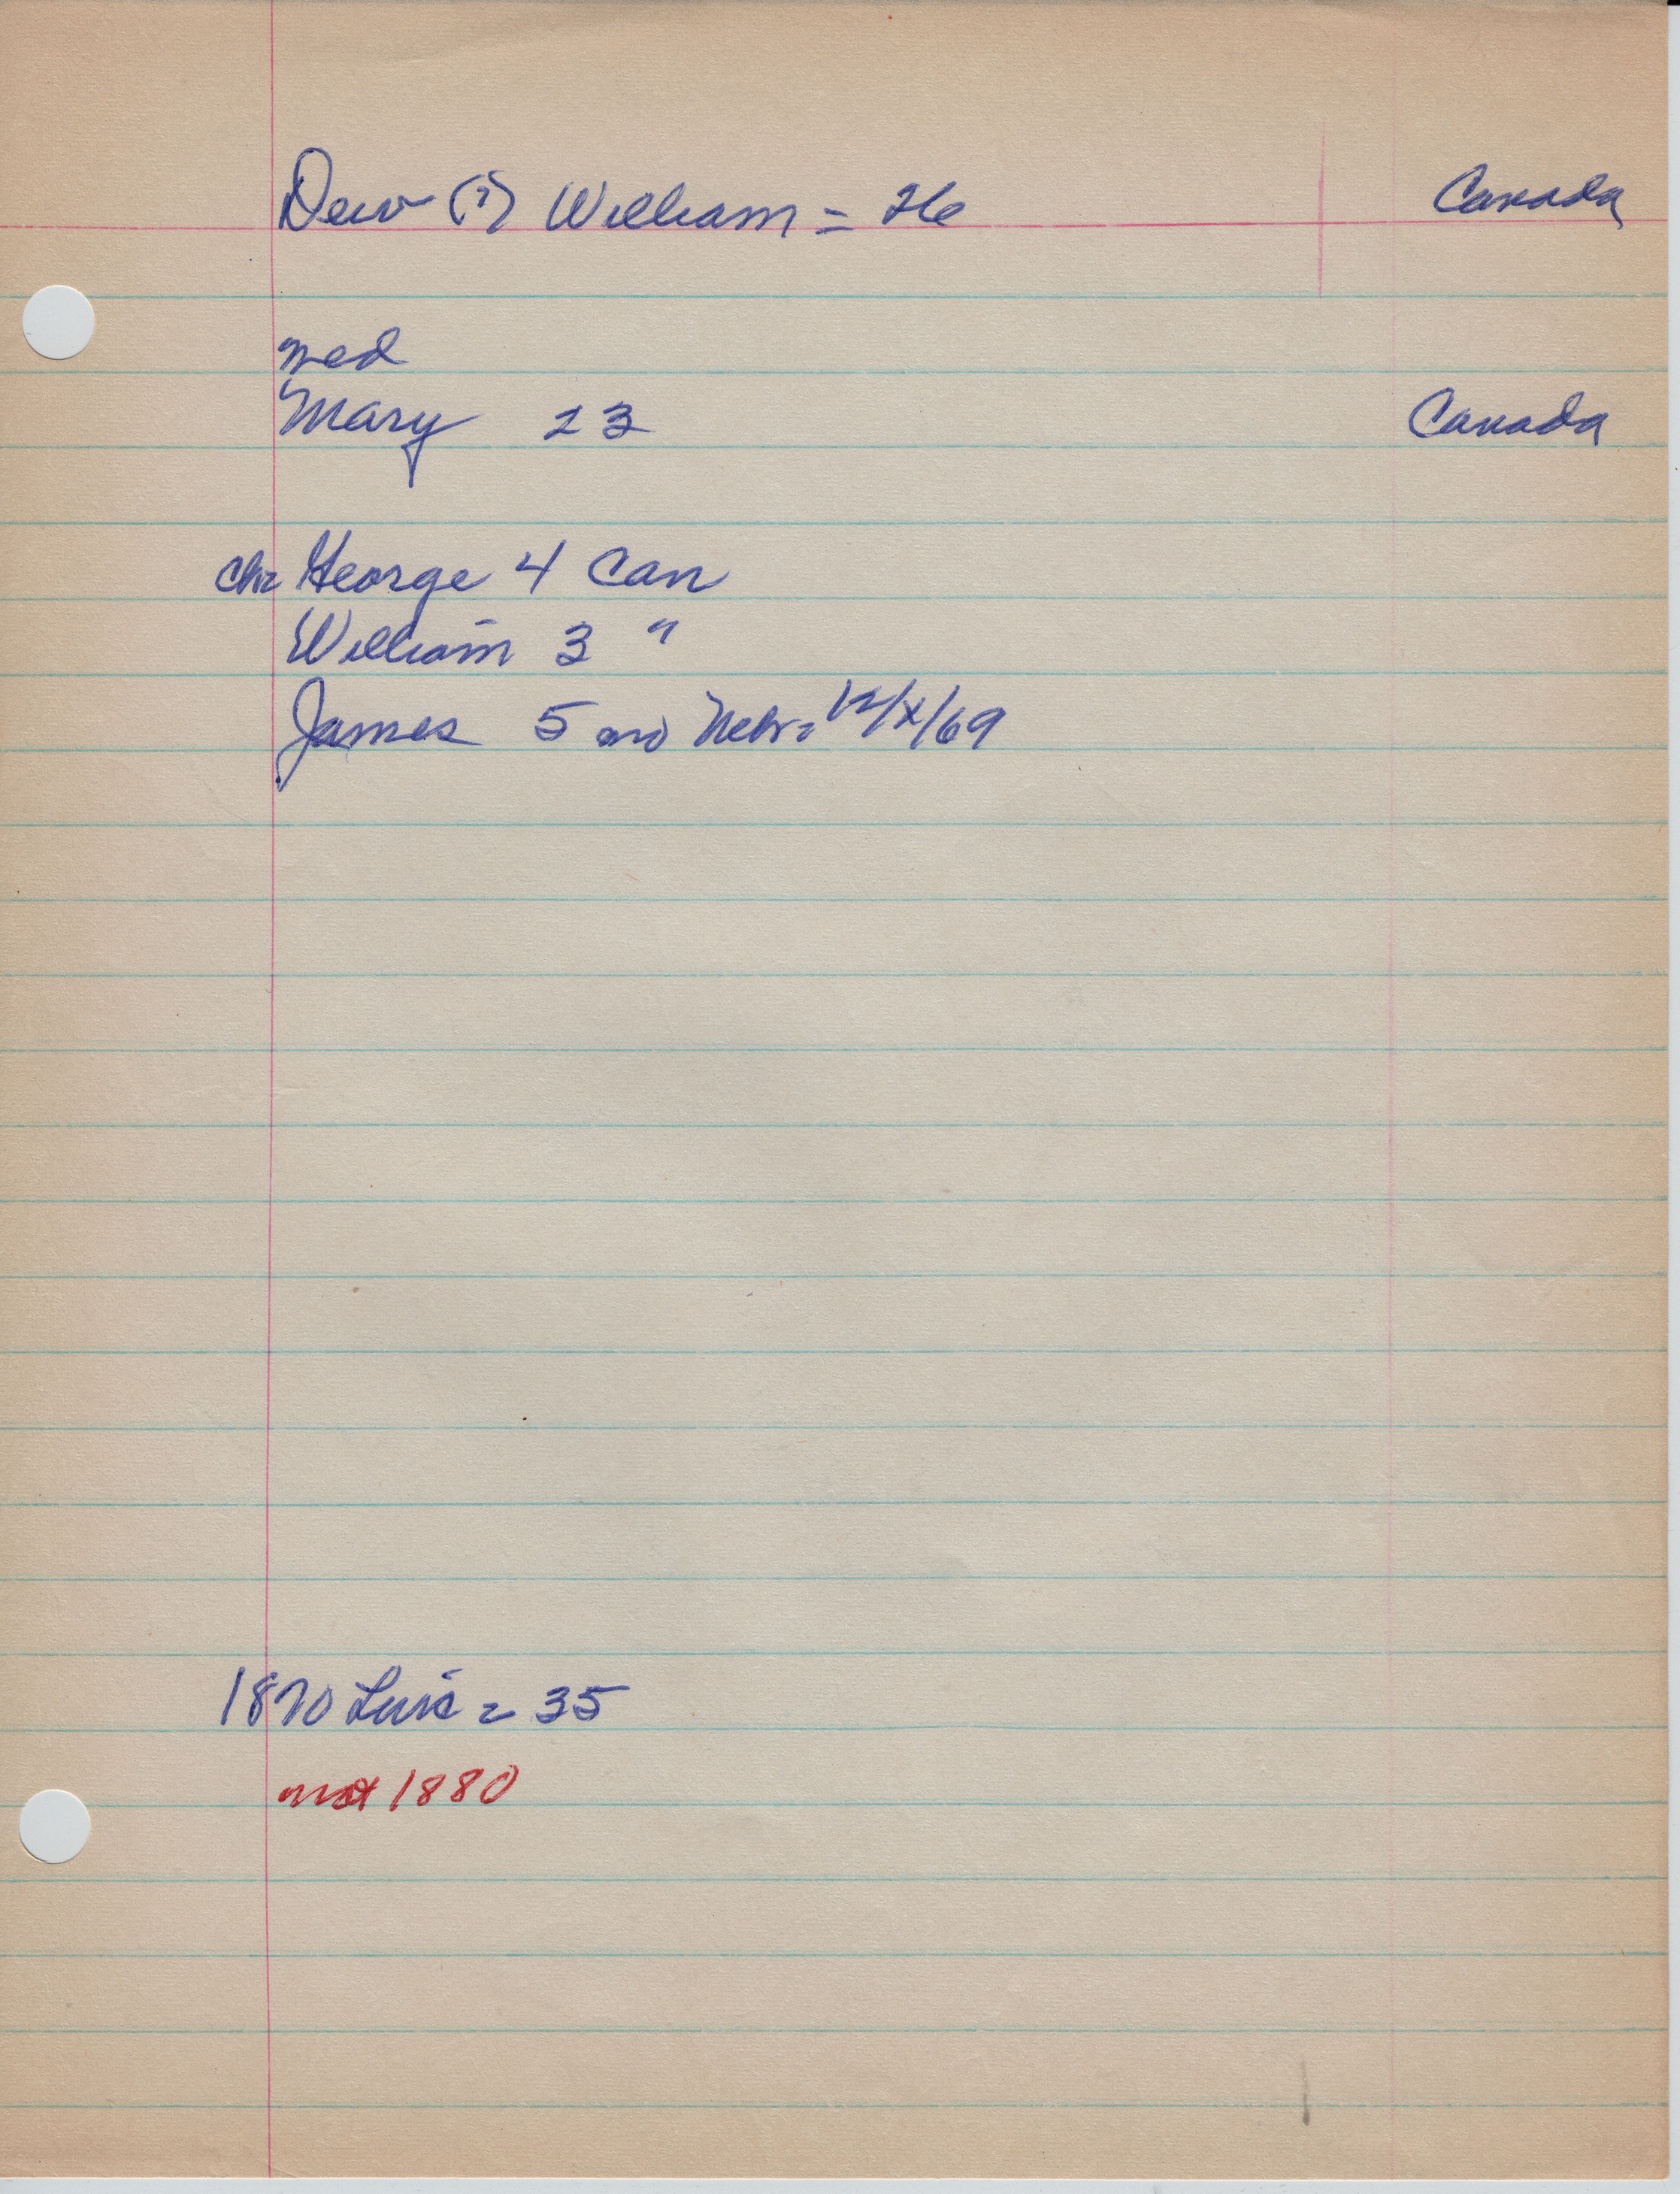 Dew (?) William = 26 Canada
med
Mary 23 Canada
Chr George 4 Can
William 3 "
James 5 mo Nebr = 12/x/69
1870 = 35
not 1880